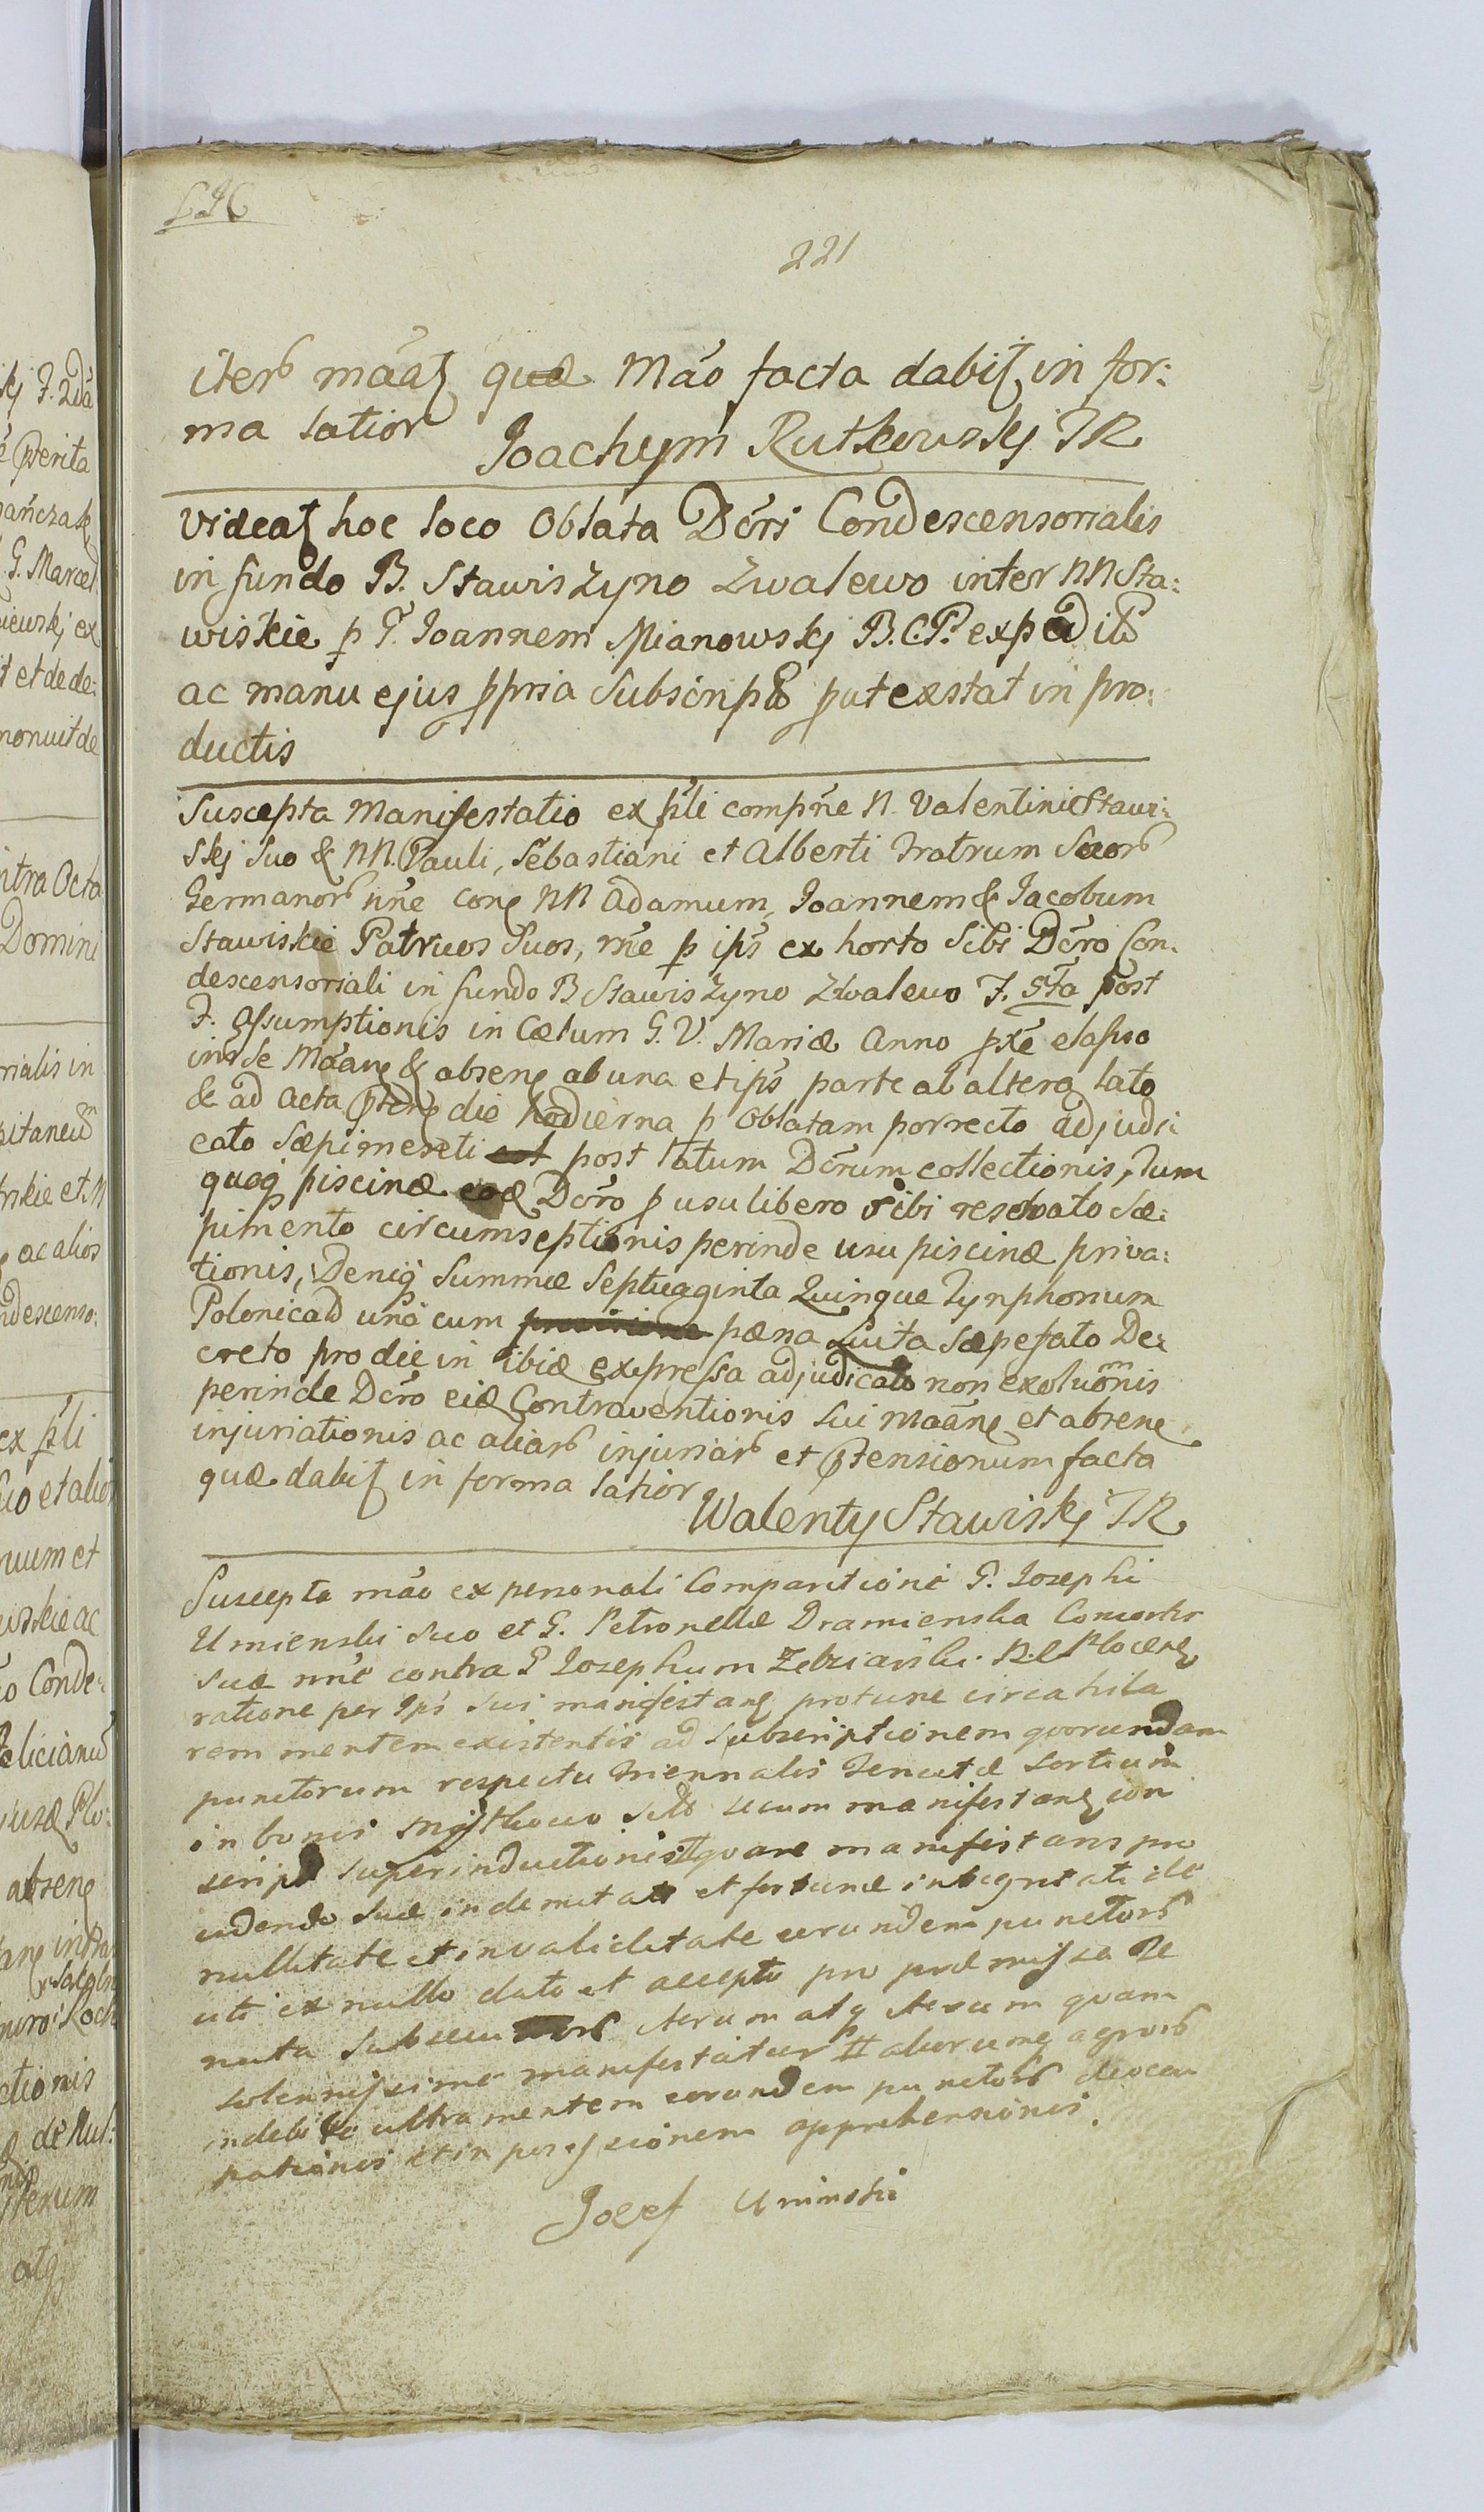 221
iterb mãat quæ Mão facta dabit in for:
ma latior Joachym Rutkowskj JR
Videat hoc loco Oblata Dcri Condescensorialis
in fundo B. Stawiszyno Zwalewo inter NN Sta:
wiskie p G. Joannem Mianowskj B.C.P. expedit
ac manu ejus ppria Subscript put exstat in pro:
ductis
Suscepta Manifestatio ex pli compne N. Valentini Stawi:
skj Suo & NN. Pauli, Sebastiani et Alberti Fratrum Suorb
Germanorb nne cong NN Adamum, Joannem & Jacobum
Stawiskie Patruos Suos, rne p ips ex horto Sibi Dcro Con:
descensoriali in fundo B Stawiszyno Zwalewo F. 5ta post
F. Assumptionis in Cœlum G. V. Mariæ Anno pxe elapso
inter Se Mãang & abseng ab una et ips parte ab altera lato
& ad Acta pteng die hodierna p Oblatam porrecto adjudi:
cato Sæpimenti post latum Dcrum collectionis, Tum
quoq piscinæ eoq Dcro p usu libero Sibi reservato Sæ:
pimento circumseptionis perinde usu piscinæ priva:
tionis, Deniq Summæ Septuaginta Quinque Tynphonum
Polonicad una cum pæna Luita Sæpefato De:
creto pro die in ibiæ expressa adjudicato non exolutionis
perinde Dcro eiæ Contraventionis Sui Mãang et abseng
injuriationis ac aliarb injuriarb et ptensionum facta
quæ dabit in forma latior
Walenty Stawiskj JR
Suscepta mão ex personali Comparitione G. Josephi
Umienski Suo et G. Petronellæ Dramienska Consortis
Suæ nne contra G Josephum
ratione per Ips Sui manifestang protunc circa hila
rem mentem existentis ad Subscriptionem quorundam
punctorum respectu triennalis Tenutæ Sortium
in bonis secum manifestang con
script Superinductionis quare manifestans pro
videndo Suæ indemnitati et fortunæ integritati de
nullitate et invaliditate eorundem punctorb
uti ex nullo dato et accepto pro præmissa Te
nuta Subsecutorb iterum atq iterum quam
Solennissime manifestatur aliorumq agrorb
indebite ultra mentem eorundem punctorb deoccu
pationis et in possessionem apprehensionis.
Josef Uminski